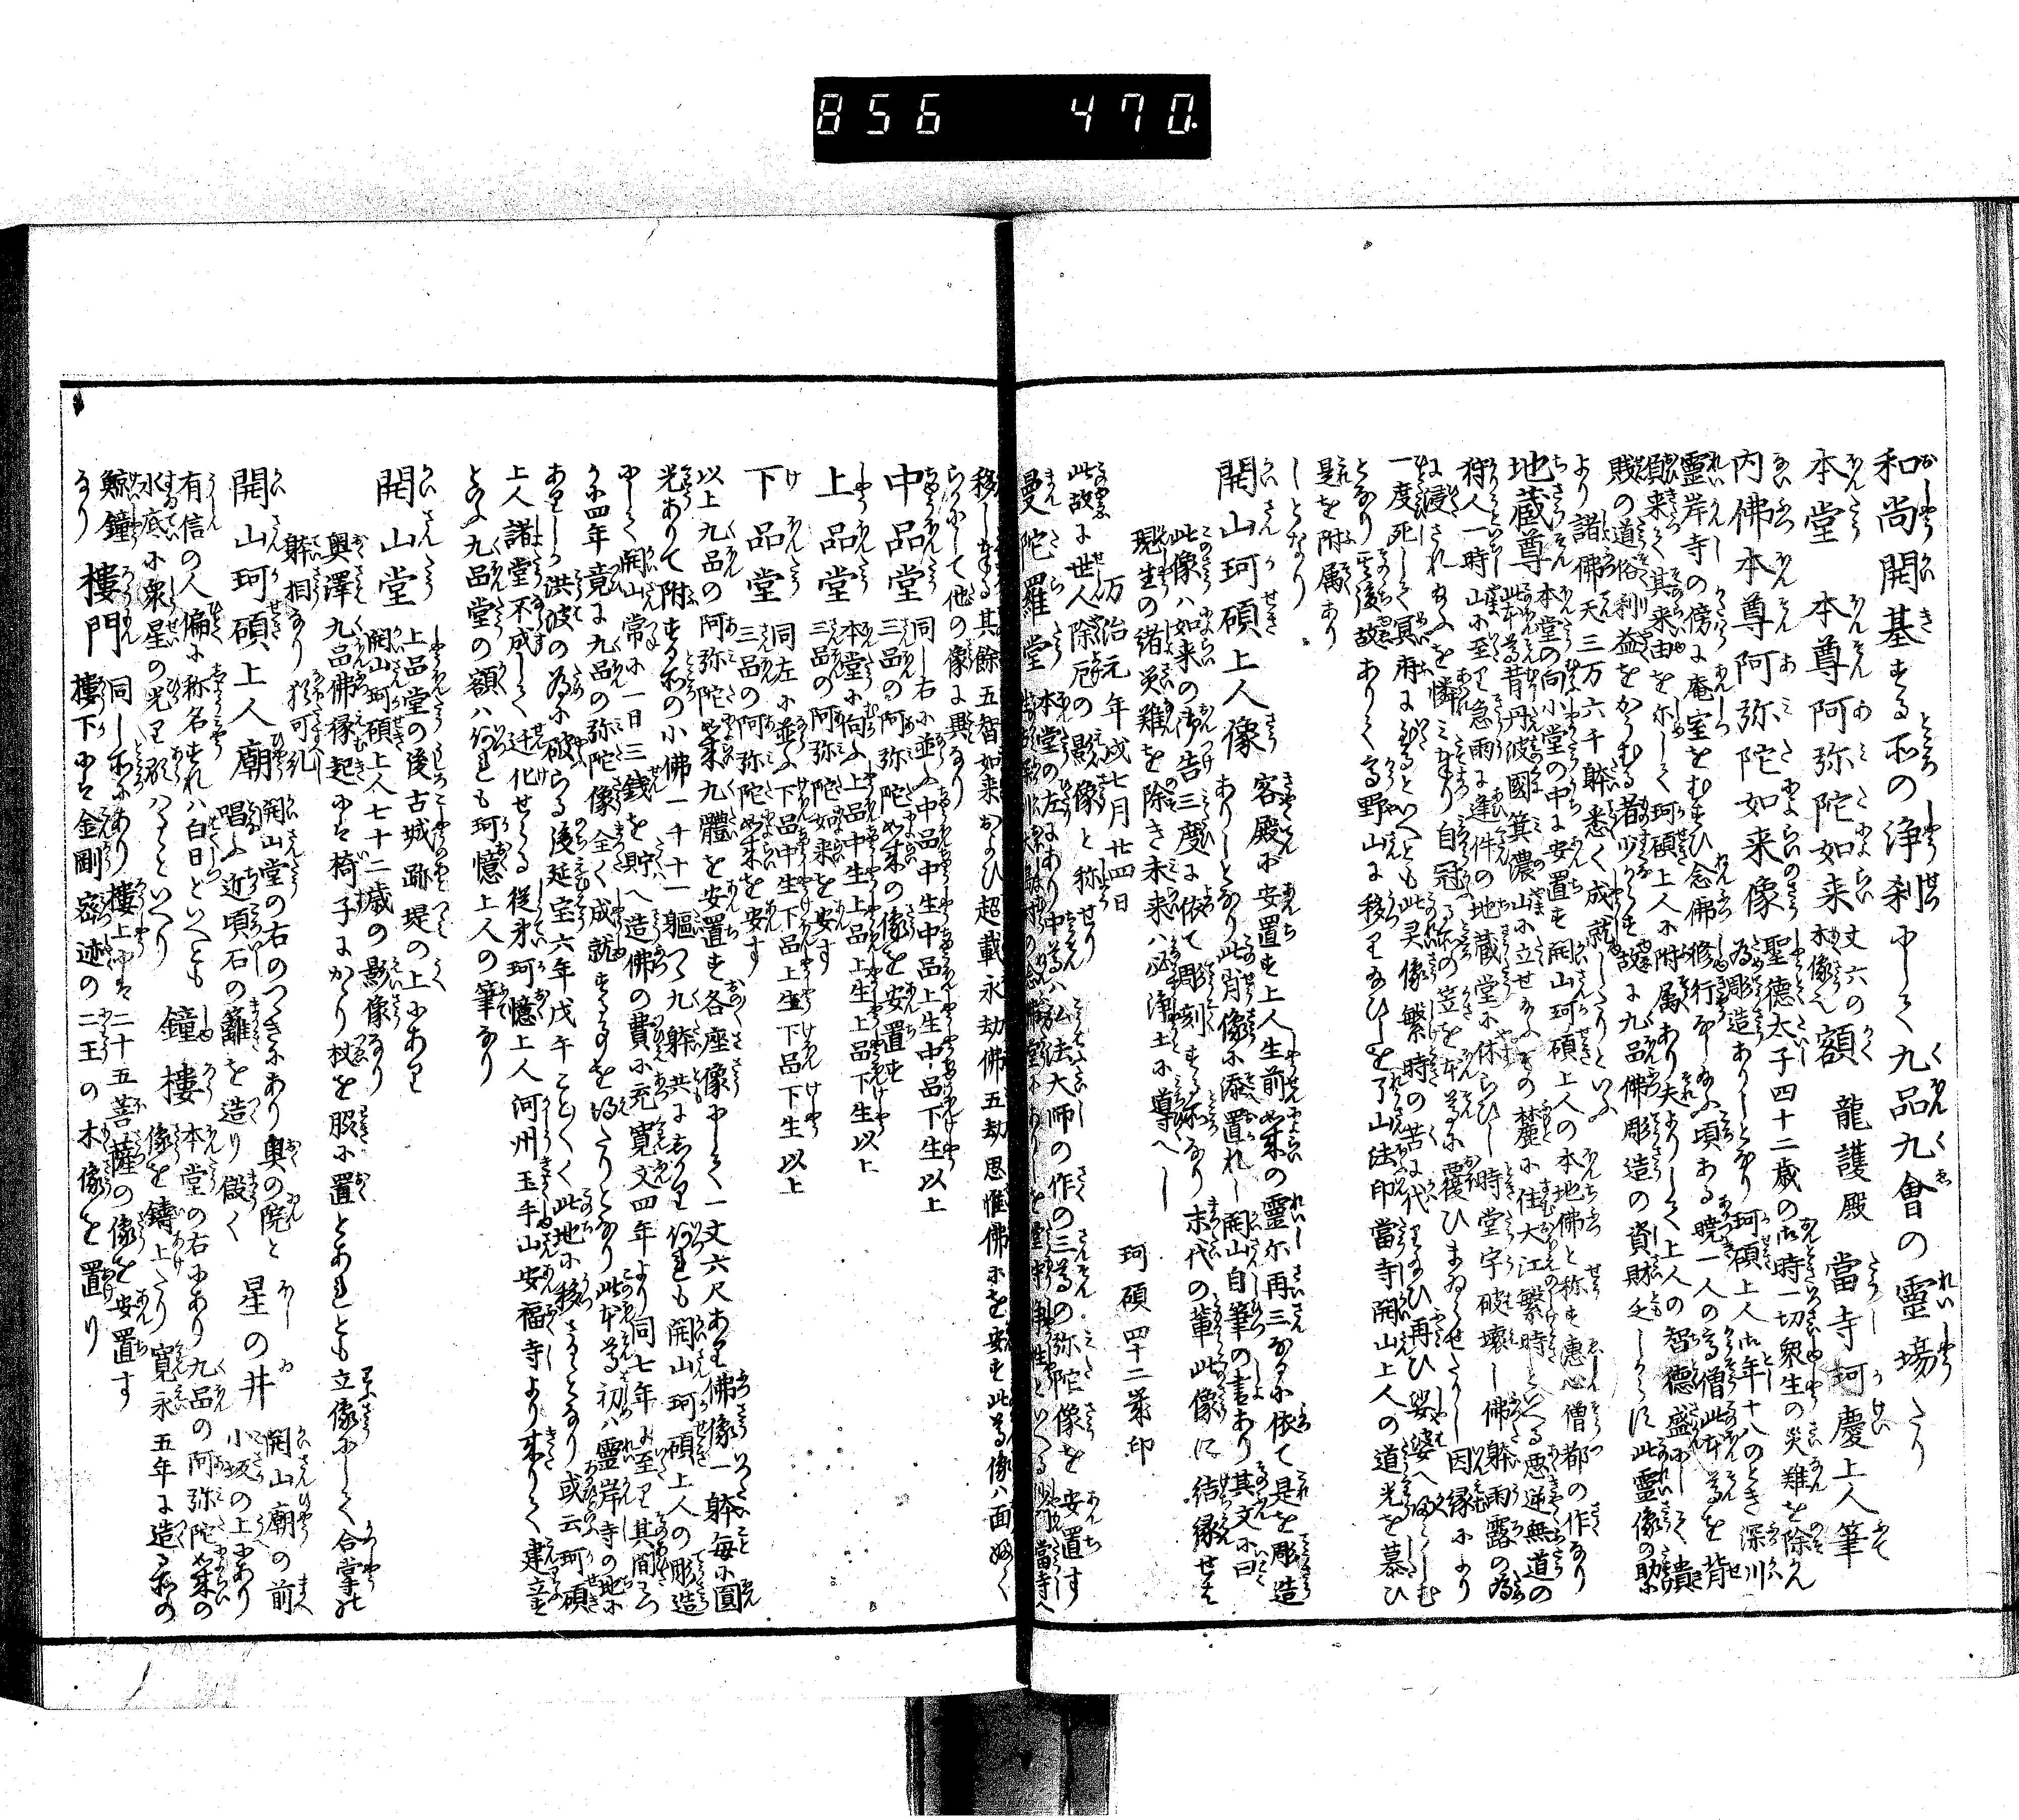 856 470.
和尚開基する所の浄刹にして九品九會の靈場たり
本堂 本尊阿弥陀如来 丈六の木像 額 龍護殿 當寺珂慶上人筆
内佛本尊阿弥陀如来像 聖德太子四十二歳の御時一切衆生の災難を除かん
為彫造ありしとなり 珂碩上人御年十八のとき深川
靈岸寺の傍に庵室をむすひ念佛修行し給ふ頃ある曉一人の高僧此本尊を背
負来りて其来由を示して珂碩上人に附属あり夫よりして上人の智德盛にして貴
賤の道俗利益をかうむる者少からす故に九品佛彫造の資財乏しからす此靈像の助に
より諸佛天三万六千躰悉く成就したりといふ
地蔵尊 本堂の向小堂の中に安置す開山珂碩上人の本地佛と称す惠心僧都の作なり
此本尊昔丹波國箕濃山に立せ給ふその麓に住大江繁時といへる悪逆無道の
狩人一時山に至り急雨に逢件の地蔵堂に休らひし時堂宇破壊し佛躰雨露の為
に浸され給ふを憐ミ奉り自冠る所の笠を本尊に覆ひまゐらせたりし因縁により
一度死して冥府に至るといへとも此灵像繁時の苦に代り給ひ再ひ娑婆へ歸らしむ
となり其後故ありて高野山に移り給ひしを了山法印當寺開山上人の道光を慕ひ
是を附属あり
しとなり
開山珂碩上人像 客殿に安置す上人生前如来の靈示再三なるに依て是を彫造
ありしとなり此肖像に添置れし開山自筆の書あり其文に曰
此像ハ如来の御告三度に依て彫刻する所なり末代の輩此像に結縁せは
現生の諸災難を除き未来ハ必浄土に導へし
万治元年戌七月廿四日 珂碩 四十二歳印
此故に世人除厄の影像と称せり
曼陀羅堂 本堂の左にあり中尊ハ弘法大師の作の三尊の弥陀像を安置す
移し奉る其餘五智如来および超載永劫佛五劫思惟佛等を安す此尊像ハ面ほそく
らかにして他の像に異なり
中品堂 同し右に並ふ中品中生中品上生中品下生以上
三品の阿弥陀如来の像を安置す
上品堂 本堂に向ふ上品中生上品上生上品下生以上
三品の阿弥陀如来を安す
下品堂 同左に並ふ下品中生下品上生下品下生以上
三品の阿弥陀如来を安す
以上九品の阿弥陀如来九體を安置す各座像にして一丈六尺あり佛像一躰毎に圓
光ありて附する所の小佛一千十一軀つゝ九躰共にしかり何れも開山珂碩上人の彫造
にして開山常に一日三銭を貯へ造佛の費に充寛文四年より同七年に至り其間わつ
か四年竟に九品の弥陀像全く成就する事を得たりとなり此本尊初ハ靈岸寺の地に
ありしか洪波の為に破らる後延宝六年戊午ことことく此地に移すとなり或云珂碩
上人諸堂不成して迁化せらる従弟珂憶上人河州玉手山安福寺より来りて建立
となふ九品堂の額ハ何れも珂憶上人の筆なり
開山堂 上品堂の後古城跡堤の上にあり
開山珂碩上人七十二歳の影像なり
奥澤九品佛縁起には椅子にかゝり杖を脇に置とあれとも立像にして合掌の
躰相なり猶可糺
開山珂碩上人廟 開山堂の右のつゝきにあり奥の院と
唱ふ近頃石の籬を造り假く 星の井 開山廟の前
小坂の上にあり
有信の人偏に称名すれハ白日といへとも
水底に衆星の光り顕ハるといへり 鐘樓 本堂の右にあり九品の阿弥陀如来の
像を鋳上たり寛永五年に造る所の
鯨鐘
なり 樓門 同し所にあり樓上には二十五菩薩の像を安置す
樓下には金剛密迹の二王の木像を置り